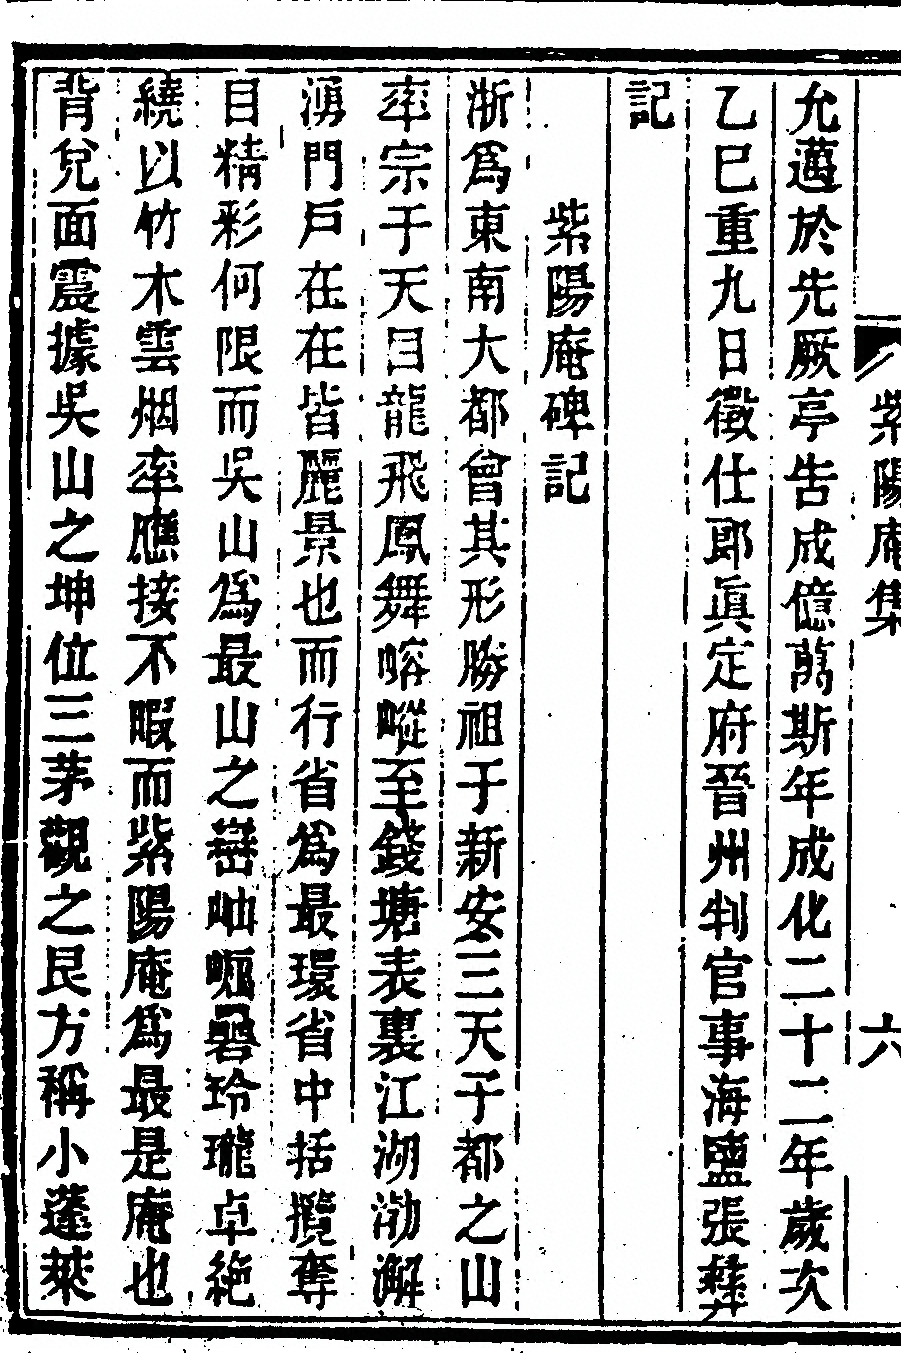 紫陽庵集
六
允邁於先厥亭告成億萬斯年成化二十二年歲次
乙巳重九日徵仕郎眞定府晉州判官事海鹽張彝
記
紫陽庵碑記
浙爲東南大都曾其形勝祖于新安三天子都之山
率宗于天目龍飛鳳舞嵱嵷至錢塘表裏江湖渤澥
湧門戶在在皆麗景也而行省爲最環省中括攬奪
目精彩何限而吳山爲最山之嶅岫
礐玲瓏卓絶
繞以竹木雲烟率應接不暇而紫陽庵爲最是庵也
背兌面震據吳山之坤位三茅觀之艮方稱小蓬萊